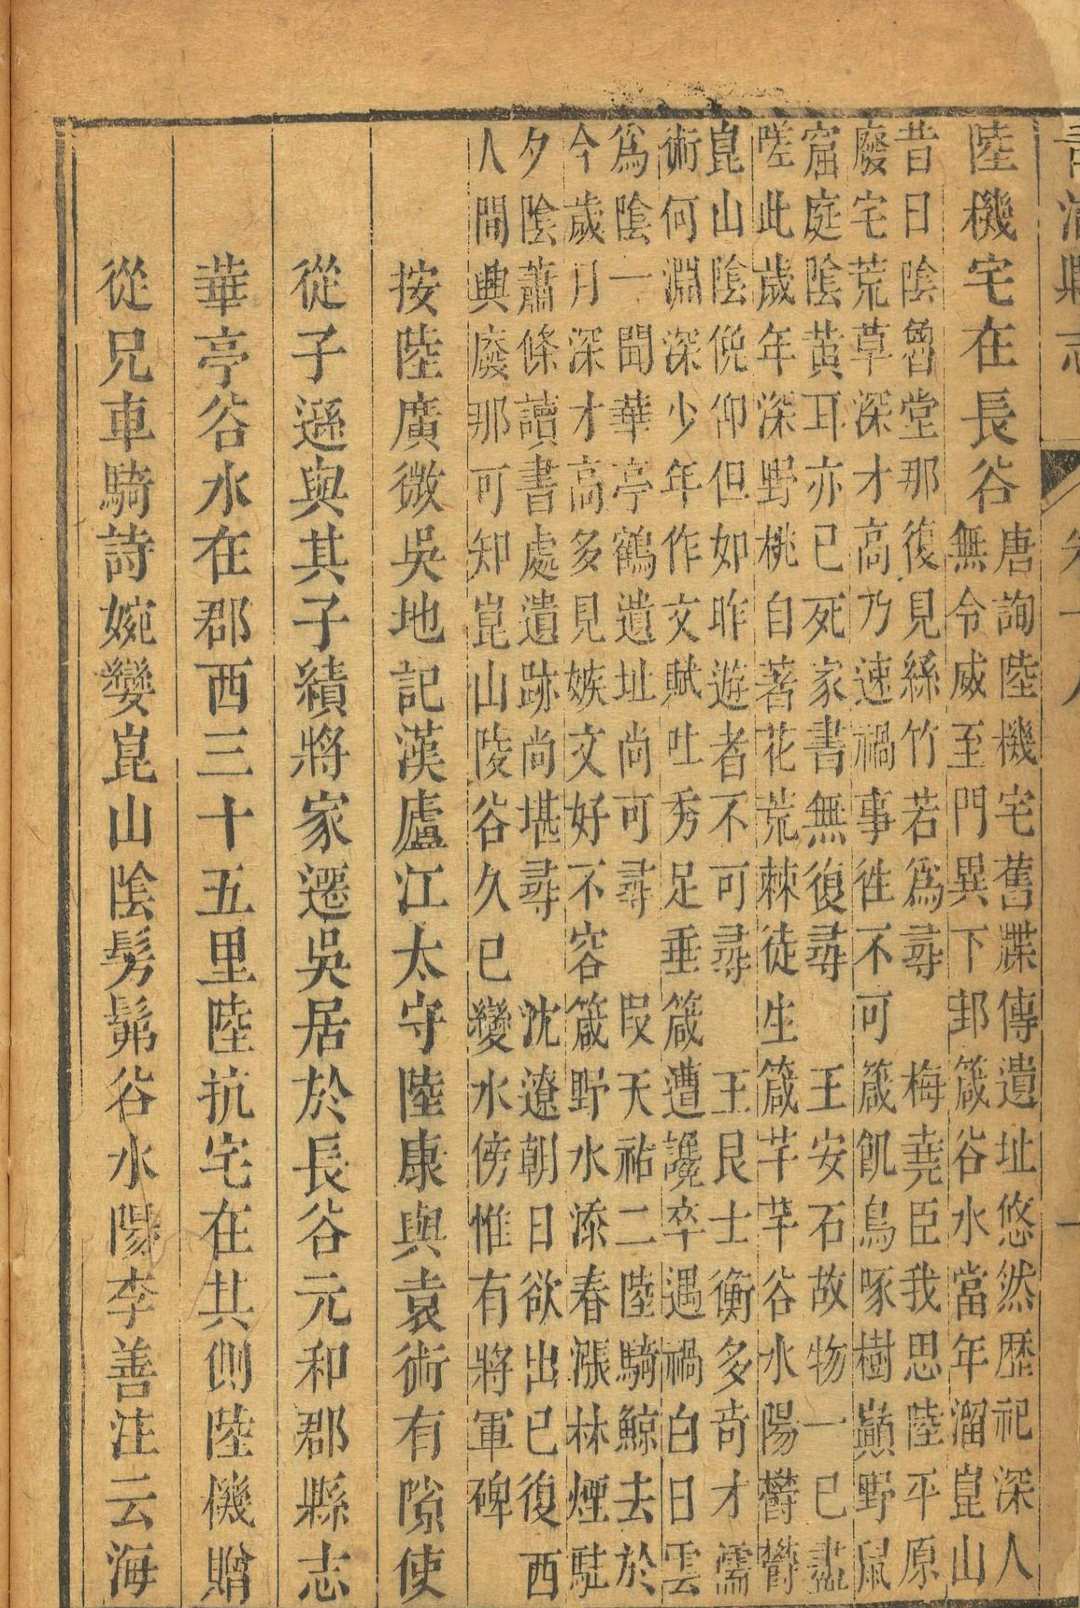 陸機宅在長谷
唐詢陸機宅舊諜傳遺址悠然歷祀深人
無令威至門異下邽箴谷水當年溜崑山
昔日陰魯堂那復見絲竹若爲尋　梅堯臣我思陸平原
廢宅荒草深才高乃速禍事徃不可箴飢鳥啄樹巔野鼠
窟庭陰黃耳亦已死家書無復尋　王安石故物一已盡
嗟此歲年深野桃自著花荒棘徒生箴芊芊谷水陽鬱鬱
崑山陰俛仰但如昨遊者不可尋　王艮士衡多奇才儒
術何淵深少年作文賦吐秀足垂箴遭讒卒遇禍白日雲
爲陰一聞華亭鶴遺址尚可尋　段天祐二陸騎鯨去於
今歲月深才高多見嫉文好不容箴野水流春漲林煙駐
夕陰蕭條讀書處遺跡尚堪尋　沈遼朝日欲出已復西
人間興廢那可知崑山陵谷久已變水傍惟有將軍碑
按陸廣微吳地記漢廬江太守陸康與袁術有隙使
從子遜與其子績將家遷吳居於長谷元和郡縣志
華亭谷水在郡西三十五里陸抗宅在其側陸機贈
從兄車騎詩婉孌崑山陰髣髴谷水陽李善注云海